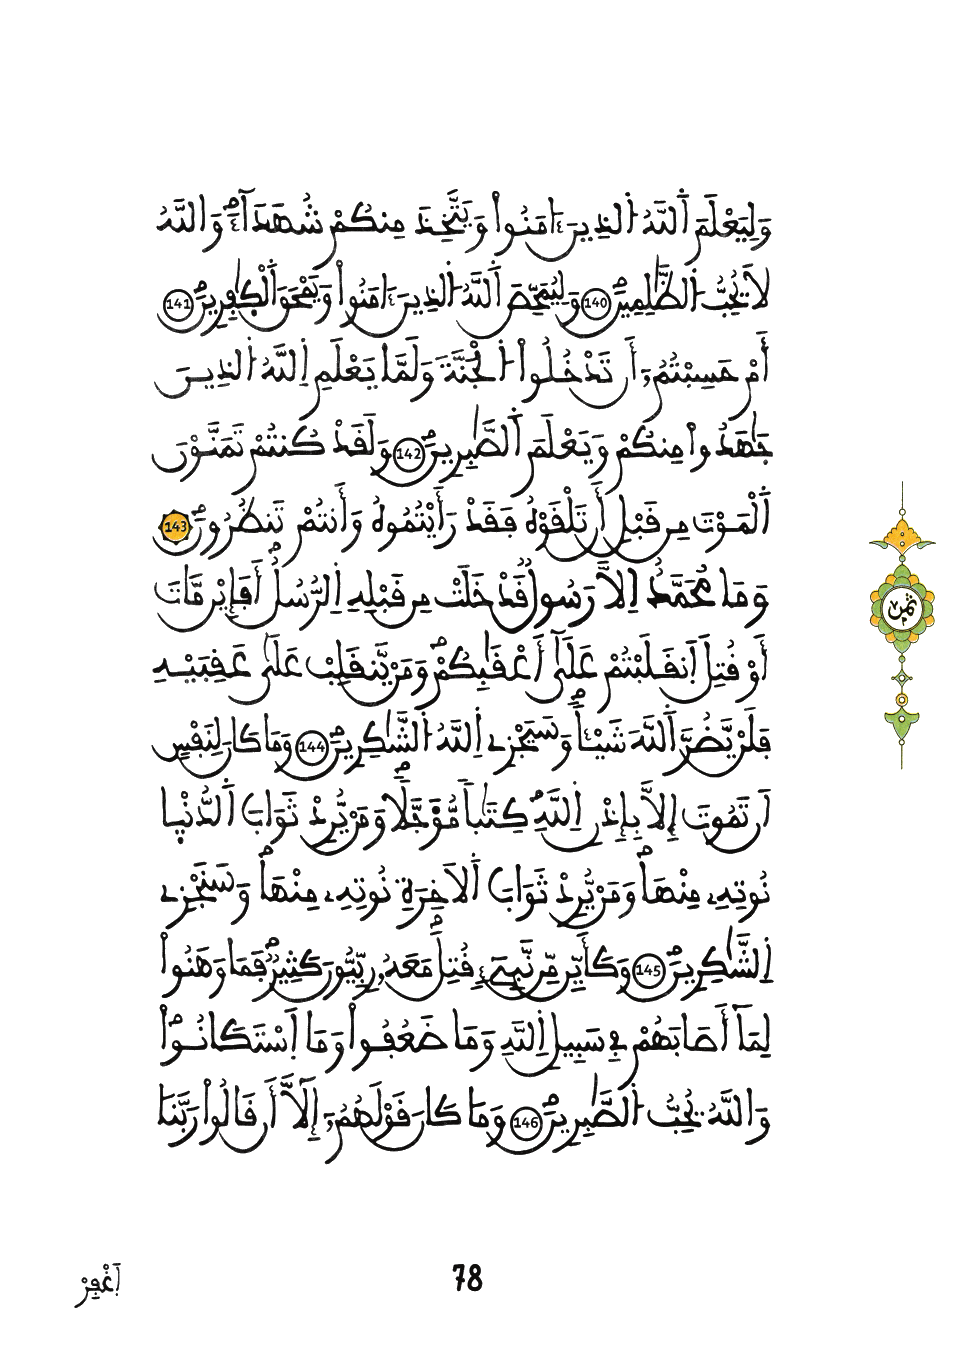 وَلِيَعْلَمَ اَ۬للَّهُ اُ۬لذِينَ ءَامَنُواْ وَيَتَّخِذَ مِنكُمْ شُهَدَآءَۖ وَاللَّهُ
لَا يُحِبُّ اُ۬لظَّٰلِمِينَۖ 140 وَلِيُمَحِّصَ اَ۬للَّهُ اُ۬لذِينَ ءَامَنُواْ وَيَمْحَقَ اَ۬لْكٰ۪فِرِينَۖ 141
أَمْ حَسِبْتُمُۥٓ أَن تَدْخُلُواْ اُ۬لْجَنَّةَ وَلَمَّا يَعْلَمِ اِ۬للَّهُ اُ۬لذِينَ
جَٰهَدُواْ مِنكُمْ وَيَعْلَمَ اَ۬لصَّٰبِرِينَۖ 142 وَلَقَدْ كُنتُمْ تَمَنَّوْنَ
اَ۬لْمَوْتَ مِن قَبْلِ أَن تَلْقَوْهُ فَقَدْ رَأَيْتُمُوهُ وَأَنتُمْ تَنظُرُونَۖ 143
وَمَا مُحَمَّدٌ اِلَّا رَسُولٞ قَدْ خَلَتْ مِن قَبْلِهِ اِ۬لرُّسُلُۖ أَفَإِيْن مَّاتَ
أَوْ قُتِلَ اَ۪نقَلَبْتُمْ عَلَىٰٓ أَعْقَٰبِكُمْۖ وَمَنْ يَّنقَلِبْ عَلَىٰ عَقِبَيْهِ
فَلَنْ يَّضُرَّ اَ۬للَّهَ شَيْـٔاٗۖ وَسَيَجْزِے اِ۬للَّهُ اُ۬لشَّٰكِرِينَۖ 144 وَمَا كَانَ لِنَفْسٍ
اَن تَمُوتَ إِلَّا بِإِذْنِ اِ۬للَّهِ كِتَٰباٗ مُّؤَجَّلاٗۖ وَمَنْ يُّرِدْ ثَوَابَ اَ۬لدُّنْي۪ا
نُوتِهِۦ مِنْهَاۖ وَمَنْ يُّرِدْ ثَوَابَ اَ۬لَاخِرَةِ نُوتِهِۦ مِنْهَاۖ وَسَنَجْزِے
اِ۬لشَّٰكِرِينَۖ 145 وَكَأَيِّن مِّن نَّبِےٓءٖ قُتِلَ مَعَهُۥ رِبِّيُّونَ كَثِيرٞۖ فَمَا وَهَنُواْ
لِمَآ أَصَابَهُمْ فِے سَبِيلِ اِ۬للَّهِ وَمَا ضَعُفُواْ وَمَا اَ۪سْتَكَانُواْۖ
وَاللَّهُ يُحِبُّ اُ۬لصَّٰبِرِينَۖ 146 وَمَا كَانَ قَوْلَهُمُۥٓ إِلَّآ أَن قَالُواْ رَبَّنَا
ثمن
78
اَ۪غْفِرْ